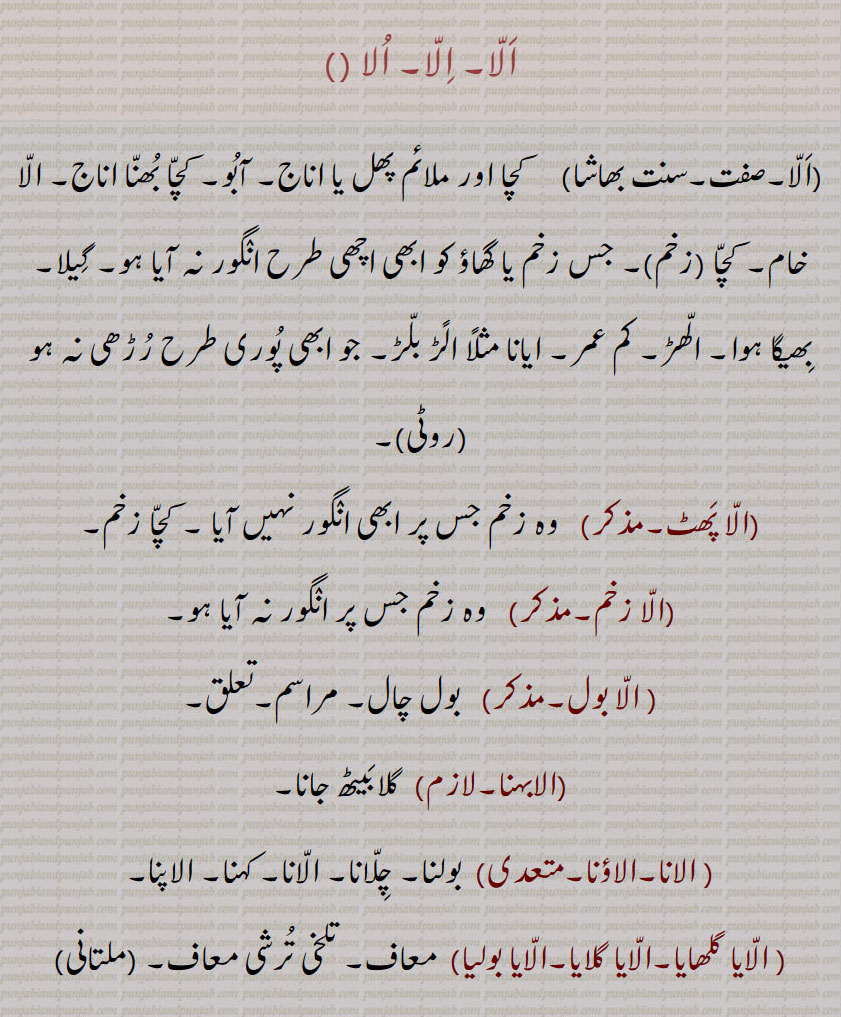 اَلّا۔ اِلّا۔ اُلا ()
(اَلّا۔صفت۔سنت بھاشا) کچا اور ملائم پھل یا اناج۔ آبُو۔ کچّا بُھنّا اناج۔ الّا
خام۔ کچّا (زخم)۔ جس زخم یا گھاؤ کو ابھی اچھی طرح انگور نہ آیا ہو۔ گِیلا۔
بِھیگا ہوا۔ الّھڑ۔ کم عمر۔ ایانا مثلاً الّڑ بلّڑ۔ جو ابھی پُوری طرح رُڑھی نہ ہو
(روٹی)۔
(الّا پَھٹ۔مذکر) وہ زخم جس پر ابھی انگور نہیں آیا ۔ کچّا زخم۔
(الّا زخم۔مذکر) وہ زخم جس پر انگور نہ آیا ہو۔
( الّا بول۔مذکر) بول چال۔ مراسم۔تعلق۔
(الابہنا۔لازم) گلا بَیٹھ جانا۔
( الانا۔الاؤنا۔متعدی) بولنا۔ چِلّانا۔ الّانا۔ کہنا۔ الاپنا۔
( الّایا گلھایا۔الّایا گلایا۔الّایا بولیا) معاف۔ تلخی تُرشی معاف۔ (ملتانی)